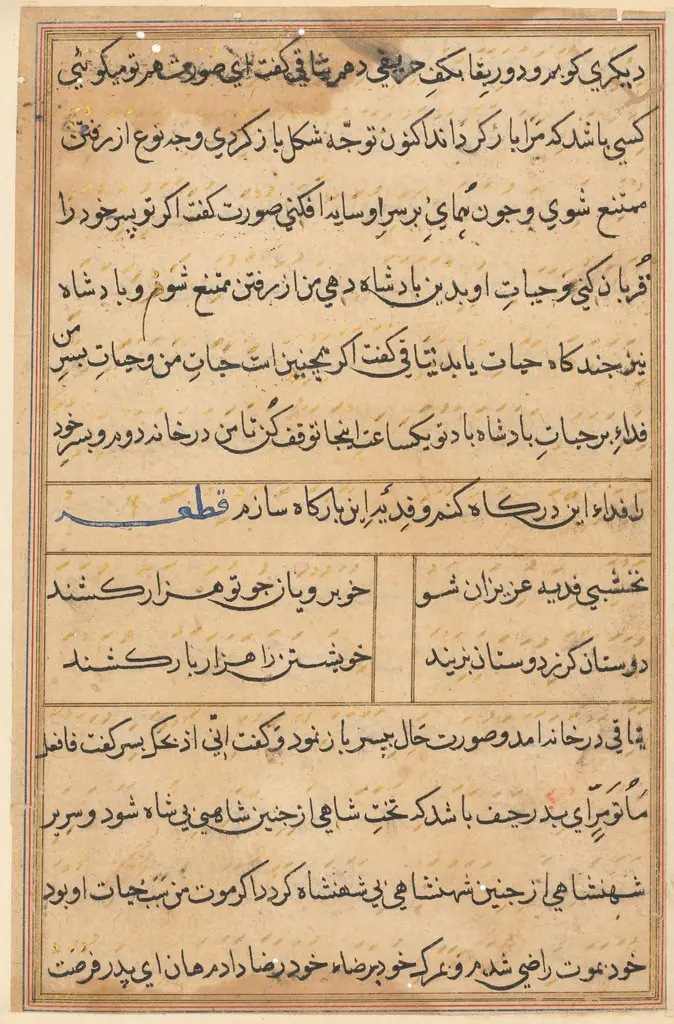 دیکری کو برو دو رفقا بکف حریفی دهم یتاقی کفت ای صورت هر تو میکوئی
کسی باشد که مرا باز کرداند اکنون توجه شکل باز کردی وجه نوع از رفتن
ممتنع شوی و جون همای بر سر او سایه افکنی صورت کفت اکر تو پسر خود را
قربان کنی و حیات او بدین بادشاه دهی من از رفتن ممتنع شوم و بادشاه
نیز جند کاه حیات یابد یتاقی کفت اکر همجنین است حیات من و حیات بسر من
فداء بر حیات بادشاه باد تو یکساعت اینجا توقف کن تا من در خانه دوم و بسر خود
را فداء این درکاه کنم و فدیه این بارکاه سازم قطعه
نخشبی فدیه عزیزان شو
خوبرویان جو تو هزار کشند
دوستان کر ز دوستان بزیند
خویشتن را هزار بار کشند
یتاقی در خانه امد و صورت حال ببسر باز نمود و کفت انی اذبحک بسر کفت فافعل
ما تومر ای بدر حیف باشد که تخت شاهی از جنین شاهی بی شاه شود و سریر
شهنشاهی از جنین شهنشاهی بی شهنشاه کردد اکر موت من سبب حیات او بود
خود بموت راضی شدم و بمرک خود برضاء خود رضا دادم هان ای پدر فرصت